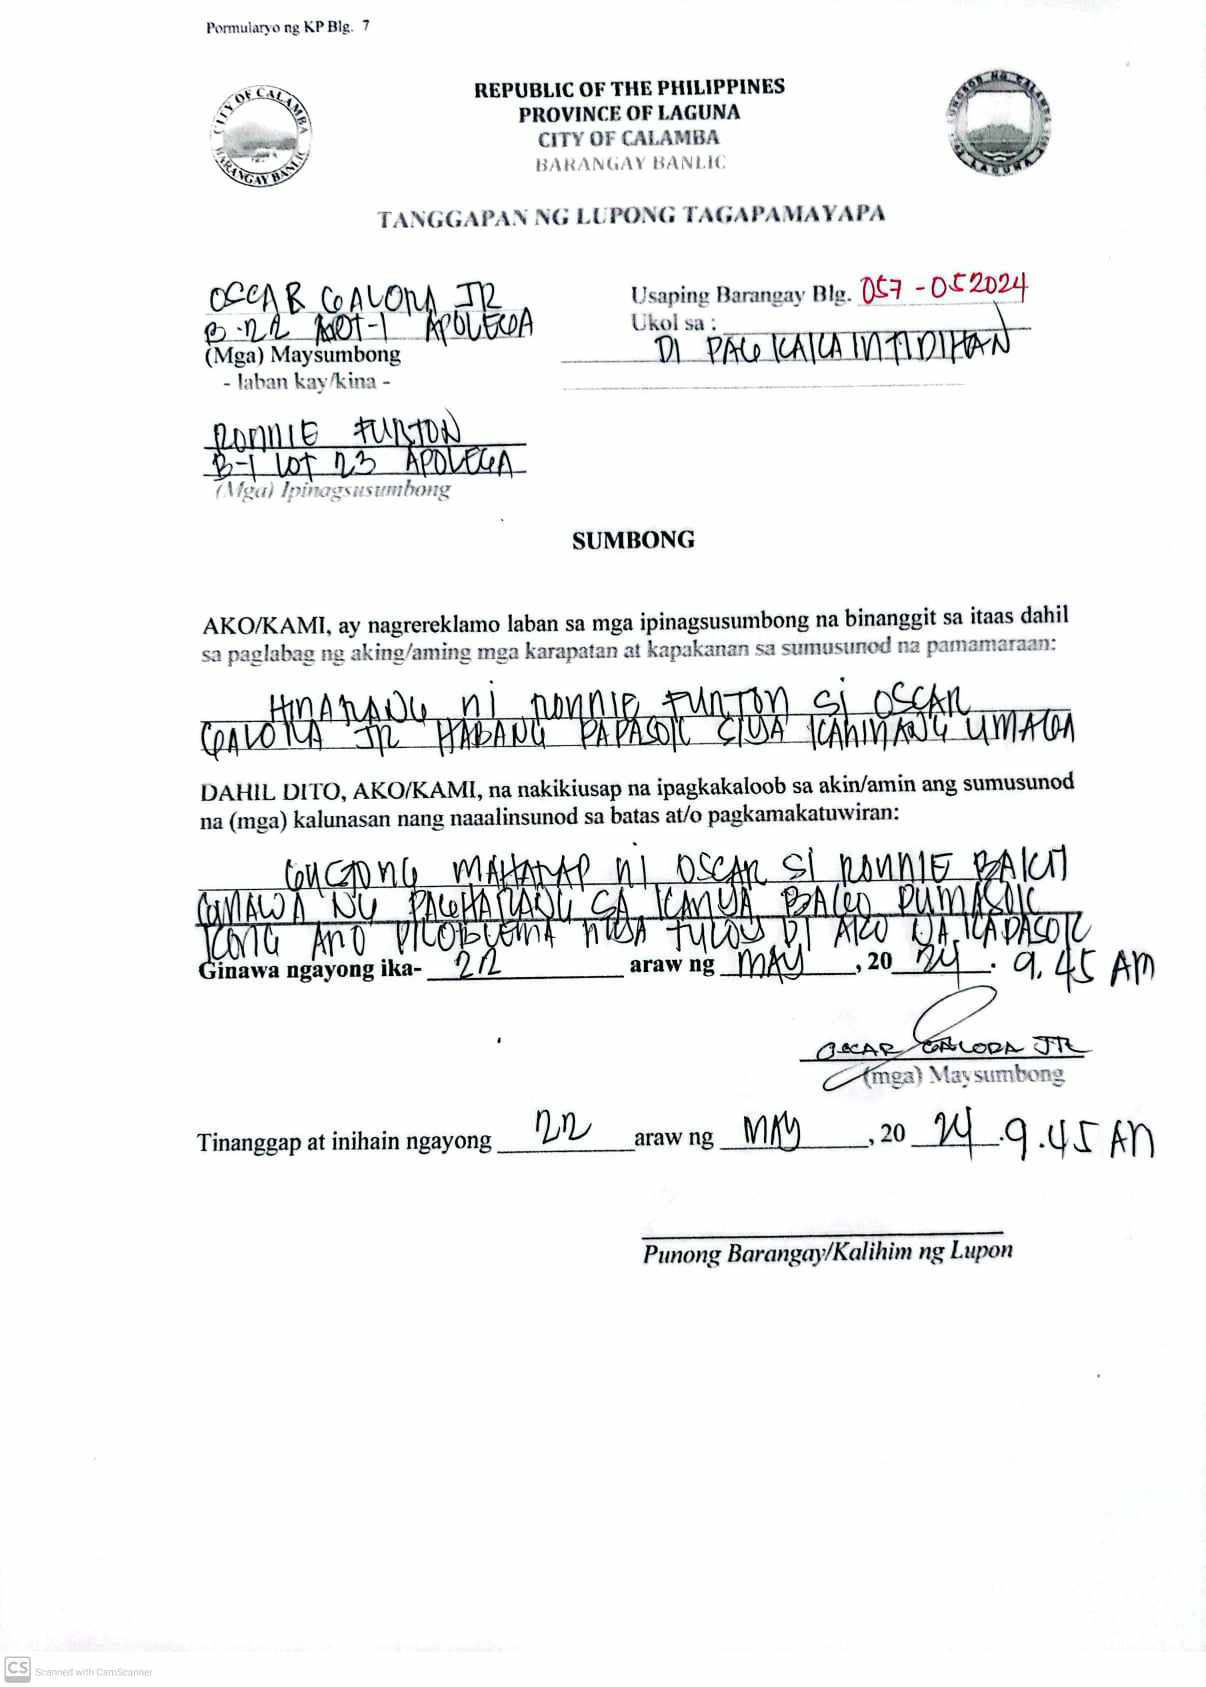 Pormularyo ng KP Blg. 7
CITY OF CALAMBA
BARANGAY BANLIC
REPUBLIC OF THE PHILIPPINES
PROVINCE OF LAGUNA
CITY OF CALAMBA
BARANGAY BANLIC
TANGGAPAN NG LUPONG TAGAPAMAYAPA
OSCAR GALORA JR
B-22 LOT-1 APOLEGA
(Mga) Maysumbong
- laban kay/kina -
Usaping Barangay Blg. 057-052024
Ukol sa :
DI PAGKAKAINTIDIHAN
RONNIE FURTON
B-1 LOT 23 APOLEGA
(Mga) Ipinagsusumbong
SUMBONG
AKO/KAMI, ay nagrereklamo laban sa mga ipinagsusumbong na binanggit sa itaas dahil
sa paglabag ng aking/aming mga karapatan at kapakanan sa sumusunod na pamamaraan:
HINARANG ni RONNIE FURTON Si OSCAR
GALORA JR HABANG PAPASOK SIYA KANINANG UMAGA
DAHIL DITO, AKO/KAMI, na nakikiusap na ipagkakaloob sa akin/amin ang sumusunod
na (mga) kalunasan nang naaalinsunod sa batas at/o pagkamakatuwiran:
GUSTONG MAHARAP ni OSCAR Si RONNIE BAKIT
GUMAWA NG PAGHARANG SA KANYA BAGO PUMASOK
KONG ANO PROBLEMA NIYA TULOY DI AKO NAKAPASOK
Ginawa ngayong ika- 22 araw ng MAY, 2024. 9.45 AM
OSCAR GALORA JR
(mga) Maysumbong
Tinanggap at inihain ngayong 22 araw ng MAY, 2024.9.45 AM
Punong Barangay/Kalihim ng Lupon
CS Scanned with CamScanner